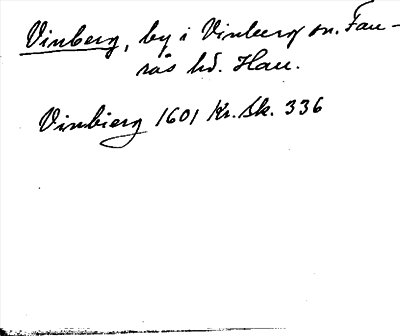 Vinberg, by i Vinberg sn. Fau-
rås hd. Hall.
Vinbierg 1601 Kr. Sk. 336